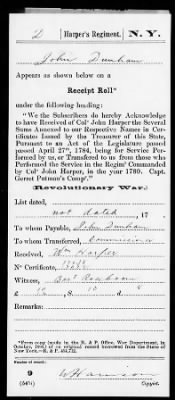 D | Harper's Regiment. | N. Y.
John Dunham
Appears as shown below on a
Receipt Roll*
under the following heading:
"We the Subscribers do hereby Acknowledge
to have Received of Colº John Harper the Several
Sums Annexed to our Respective Names in Cer-
tificates Issued by the Treasurer of this State,
Pursuant to an Act of the Legislature passed
passed April 27th, 1784, being for Service Per-
formed by us, or Transfered to us from those who
Performed the Service in the Regimt Commanded
by Colº John Harper, in the year 1780. Capt.
Garret Putman's Compy."
Revolutionary War.
List dated,
not dated, 17
To whom Payable, John Dunham
To whom Transferred,
Received, Wm Harper
Nº Certificate,
Witness,
£
*From copy (made in the R. & P. Office, War Department, in
October, of an original record borrowed from the State of
New York.—R. & P. 436,712.
9
(547i)
W Harrison
Copyist.